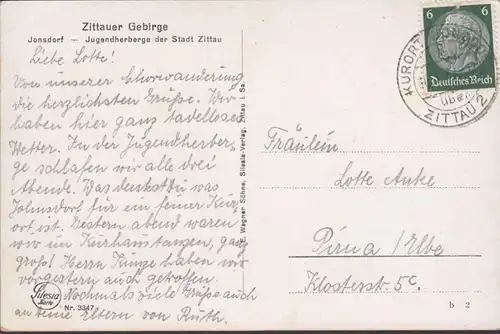 Zittauer Gebirge
Jonsdorf – Jugendherberge der Stadt Zittau
Liebe Lotte!
Von unserer Chorwanderung
die herzlichsten Grüße. Wir
haben hier ganz tadelloses
Wetter. In der Jugendherber-
ge schlafen wir alle drei
Abende. Was denkst du was
Johnsdorf für ein feiner Kur-
ort ist. Gestern abend waren
wir im Kurhaus tanzen, ganz
groß! Herrn Kunze haben wir
vorgestern auch getroffen.
Nochmals viele Grüße auch
an deine Eltern von Ruth.
Silesia
Karte
Nr. 3347
Wagner Söhne, Silesia-Verlag, Zittau i. Sa.
6 6
Deutsches Reich
KURORT
über
ZITTAU 2
Fräulein
Lotte Anke
Pirna/Elbe
Klosterstr. 5c.
b 2